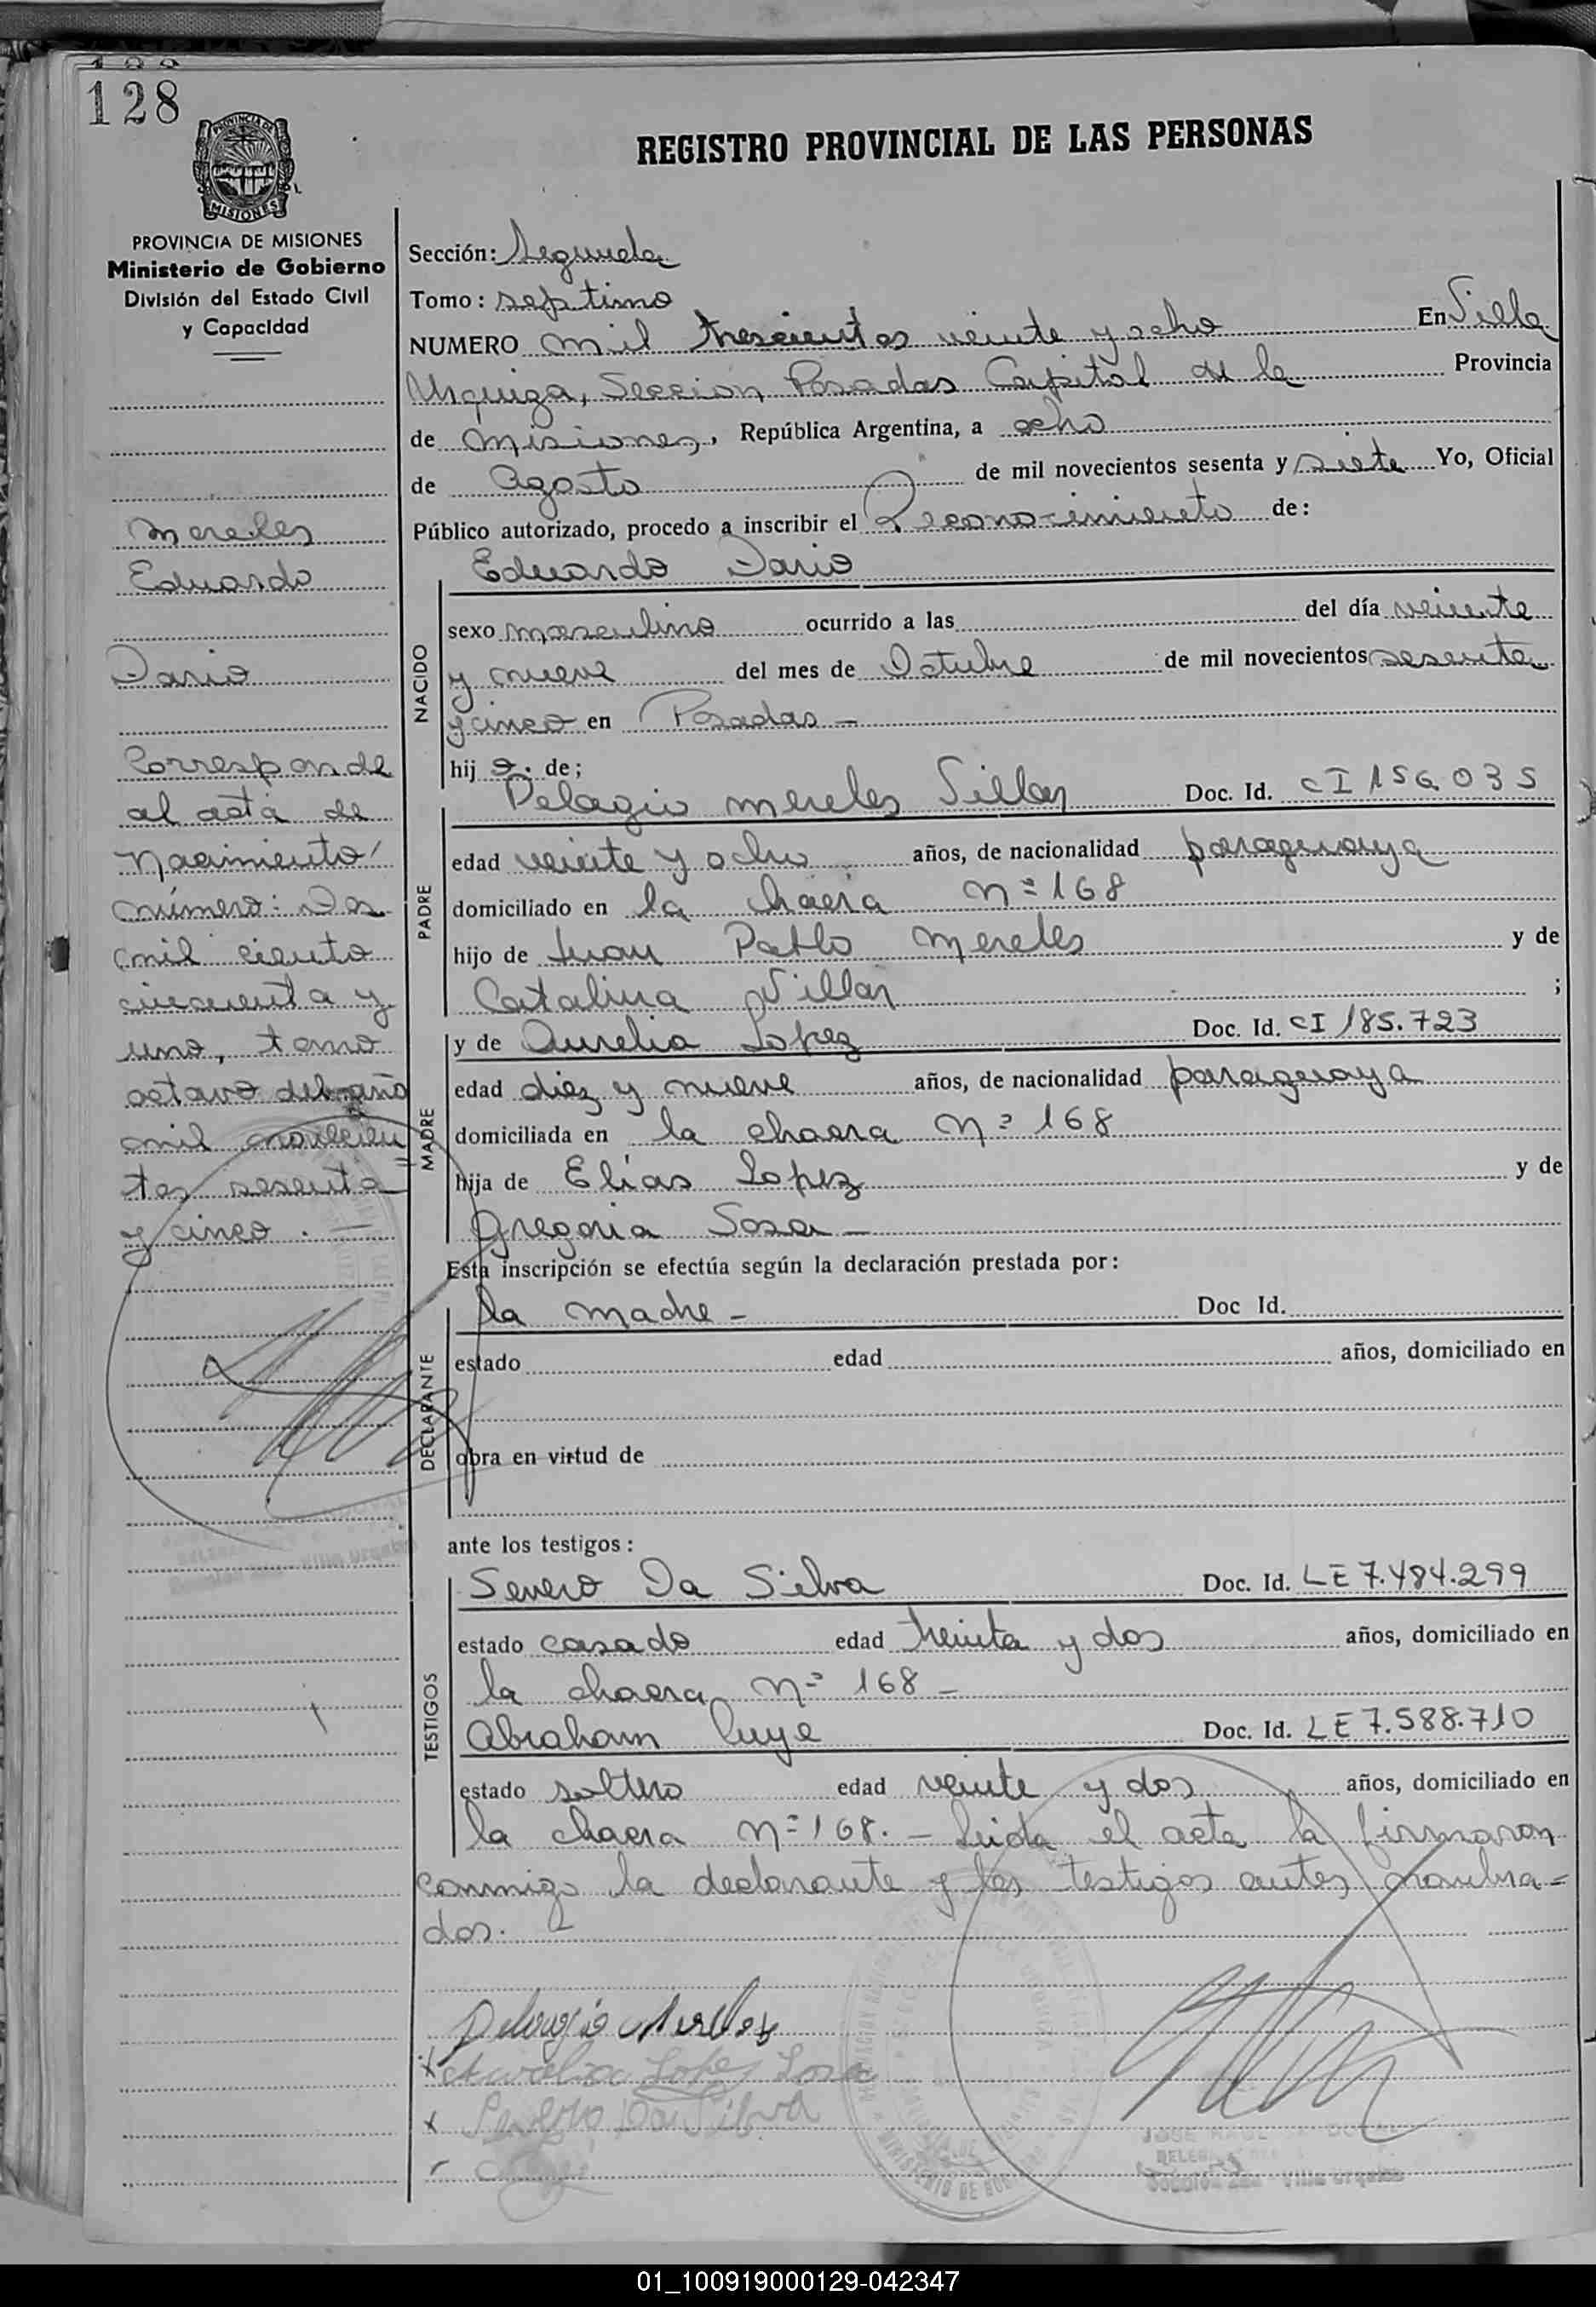 128
REGISTRO PROVINCIAL DE LAS PERSONAS
PROVINCIA DE
MISIONES
PROVINCIA DE MISIONES
Ministerio de Gobierno
División del Estado Civil
y Capacidad
Mereles
Eduardo
Dario
Corresponde
al acta de
Nacimiento
número: Dos
mil ciento
cincuenta y
uno, tomo
octavo del año
mil novecien
tos sesenta
y cinco. —
Sección: Segunda
Tomo: septimo
NUMERO mil trescientos veinte y ocho En Villa
Urquiza, Seccion Posadas Capital de la Provincia
de Misiones, República Argentina, a ocho
de Agosto de mil novecientos sesenta y siete Yo, Oficial
Público autorizado, procedo a inscribir el Reconocimiento de:
Eduardo Dario
NACIDO
sexo masculino ocurrido a las del día veinte
y nueve del mes de Octubre de mil novecientos sesenta
y cinco en Posadas —
hij o. de;
PADRE
Pelagio Mereles Villar Doc. Id. CI 156.035
edad veinte y ocho años, de nacionalidad paraguaya
domiciliado en la chacra Nº 168
hijo de Juan Pablo Mereles y de
Catalina Villar ;
MADRE
y de Aurelia Lopez Doc. Id. CI 185.723
edad diez y nueve años, de nacionalidad paraguaya
domiciliada en la chacra Nº 168
hija de Elías Lopez y de
Gregoria Sosa —
Esta inscripción se efectúa según la declaración prestada por:
DECLARANTE
la madre - Doc Id.
estado edad años, domiciliado en
obra en virtud de
ante los testigos:
TESTIGOS
Severo Da Silva Doc. Id. LE 7.484.299
estado casado edad treinta y dos años, domiciliado en
la chacra Nº 168 -
Abraham Doc. Id. LE 7.588.710
estado soltero edad veinte y dos años, domiciliado en
la chacra Nº 168. - Leida el acta la firmaron
conmigo la declarante y los testigos antes nombra=
dos.
Pelagio Mereles
x Aurelia Lopes Sosa
x Severo Da Silva
Villa Urquiza
01_100919000129-042347